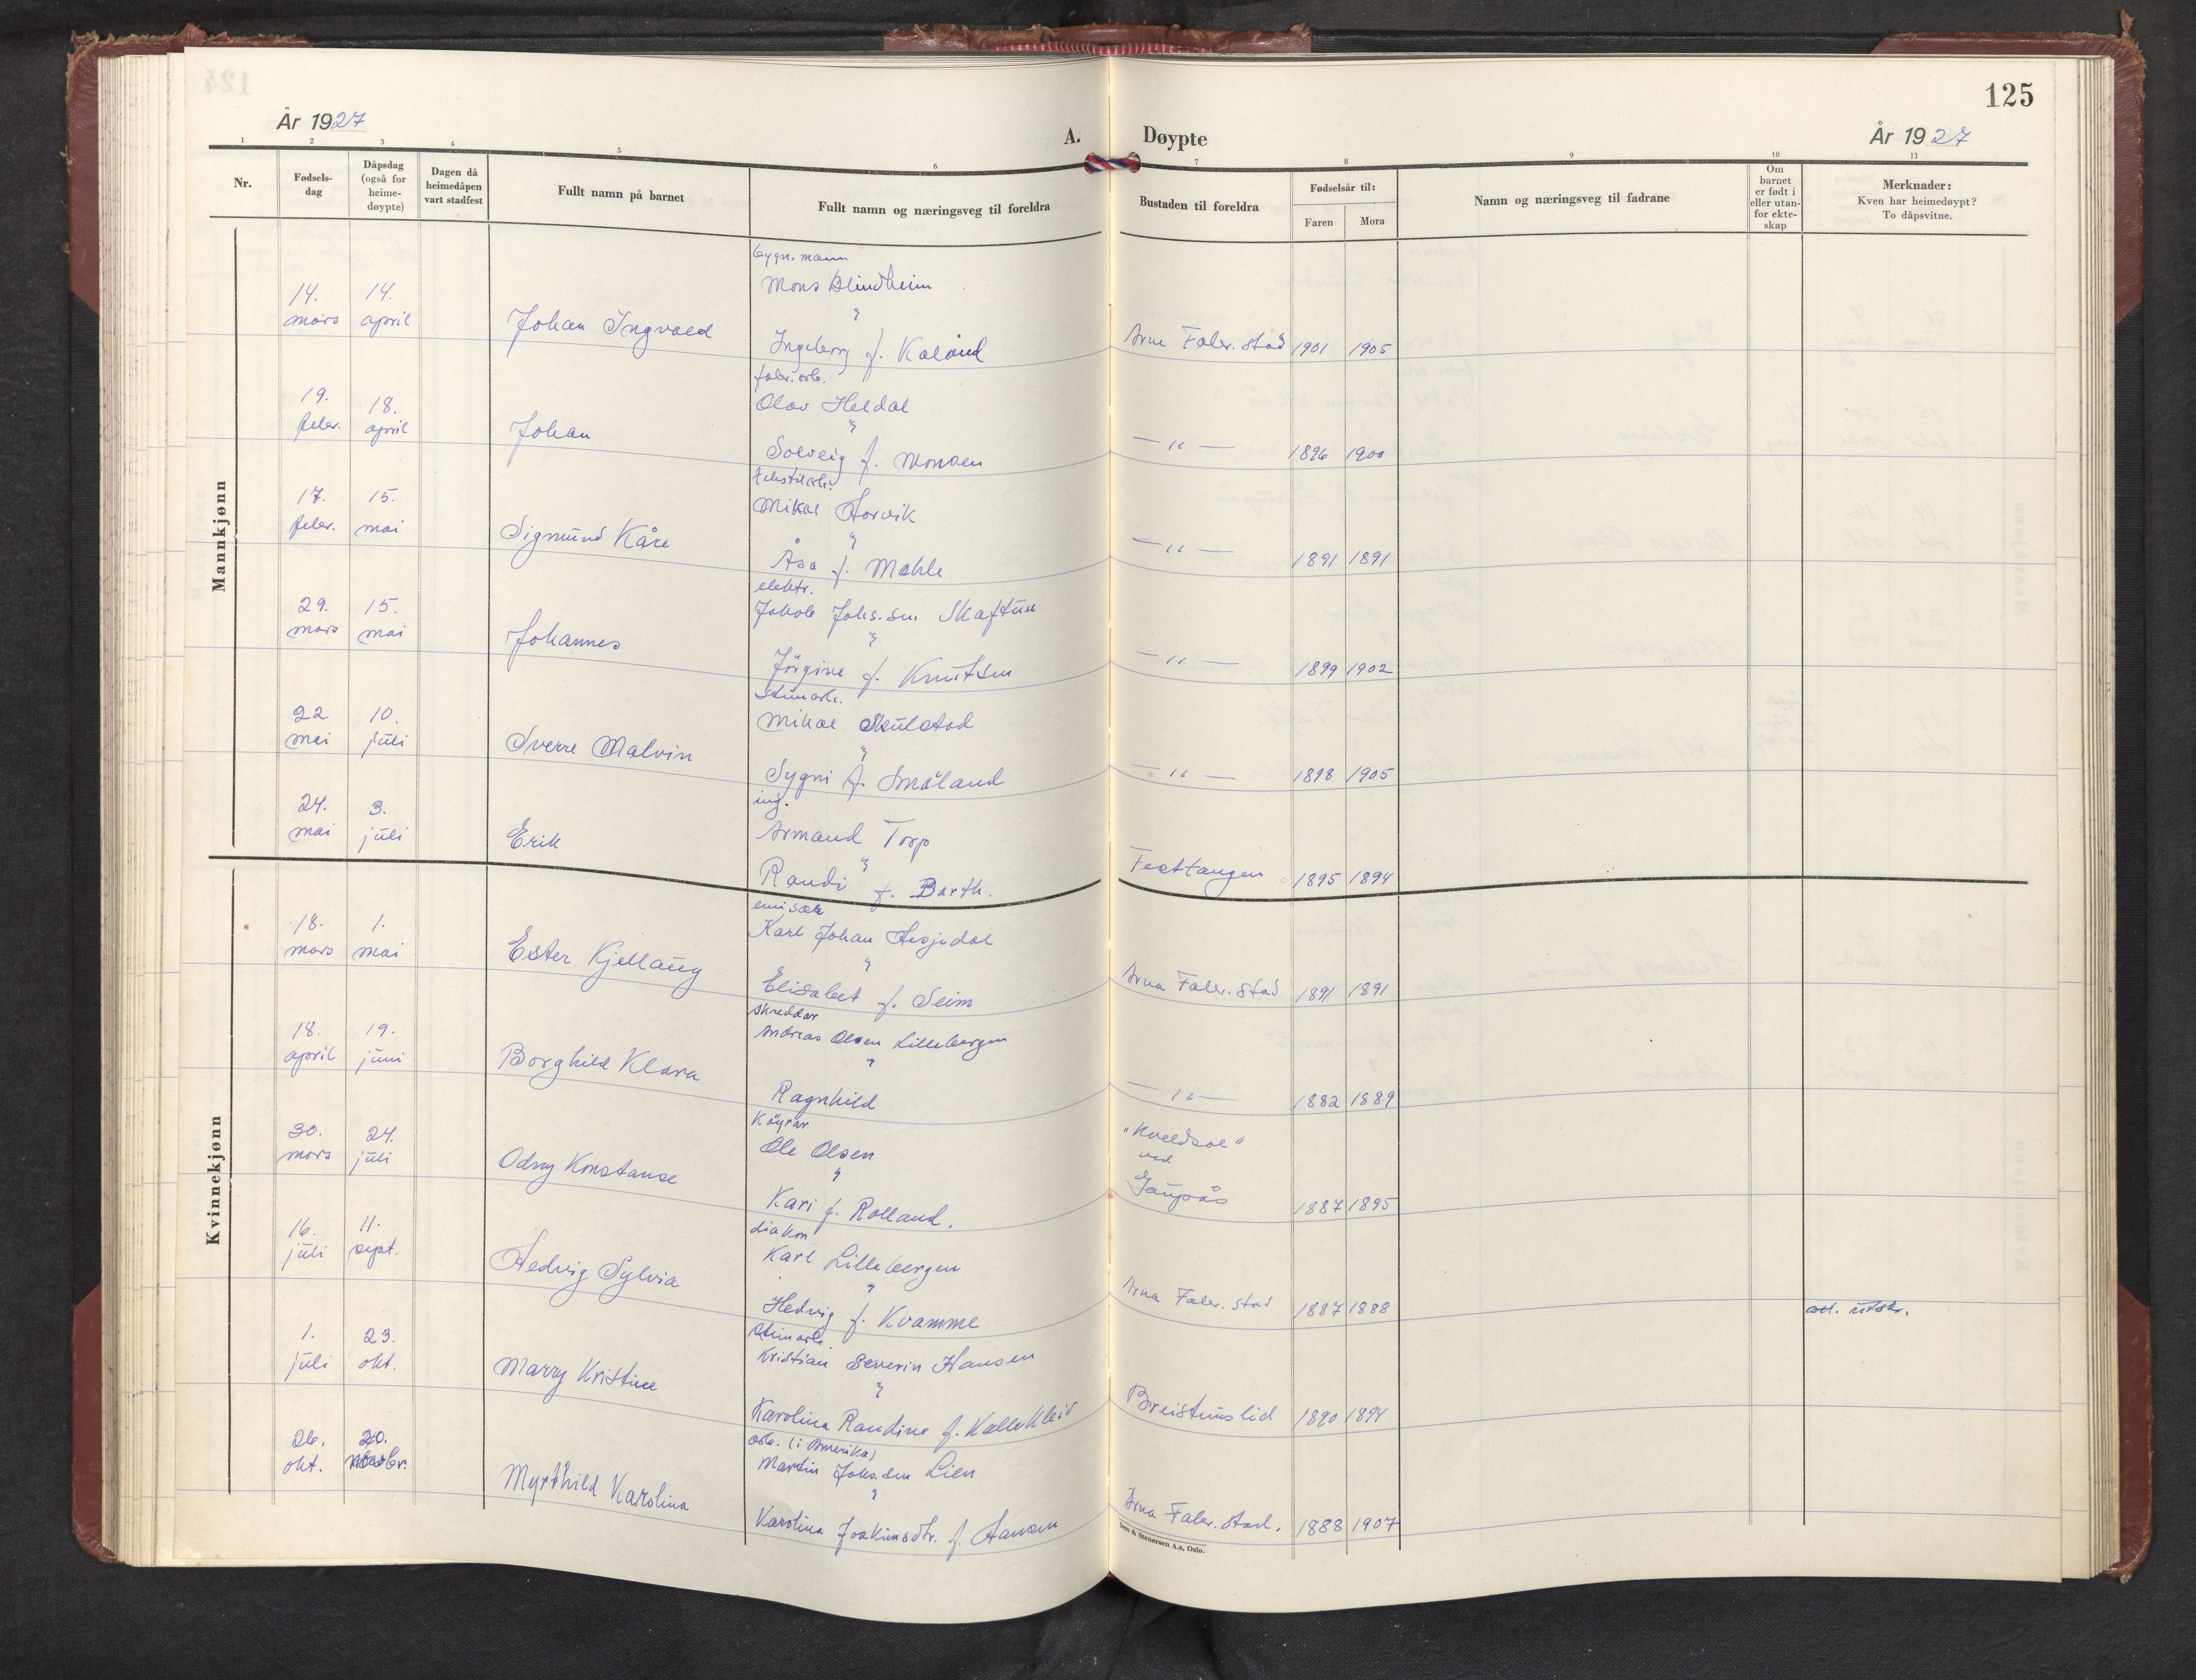 125
År 1927
A. Døypte
År 1927
1 2 3 4 5 6 7 8 9 10 11
Nr.
Fødsels-
dag
Dåpsdag
(også for
heime-
døypte)
Dagen då
heimedåpen
vart stadfest
Fullt namn på barnet
Fullt namn og næringsveg til foreldra
Bustaden til foreldra
Fødselsår til:
Faren Mora
Namn og næringsveg til fadrane
Om
barnet
er født i
eller utan-
for ekte-
skap
Merknader:
Kven har heimedøypt?
To dåpsvitne.
Mannkjønn
bygn.mann
14. 14. Mons Blindheim
mars april Johan Ingvald "
Ingeborg f. Kaland Arna Fabr.stad 1901 1905
fabr.arb.
19. 18. Olav Heldal
febr. april Johan "
Solveig f. Monsen — " — 1896 1900
tekstilarb.
17. 15. Mikal Horvik
febr. mai Sigmund Kåre "
Åsa f. Mahle — " — 1891 1891
elektr.
29. 15. Jakob Johs.sn. Skaftun
mars mai Johannes "
Jörgine f. Knutsen — " — 1899 1902
22. 10. Mikal Skulstad
mai juli Sverre Malvin "
Sygni f. Småland — " — 1898 1905
ing.
24. 3. Armand Torp
mai juli Erik "
Randi f. Barth. Festtangen 1895 1894
Kvinnekjønn
emisær
18. 1. Karl Johan Hesjedal
mars mai Ester Kjellaug "
Elisabet f. Seim Arna Fabr.stad 1891 1891
skreddar
18. 19. Andreas Olsen Lillebergen
april juni Borghild Klara "
Ragnhild — " — 1882 1889
Köyrar
30. 24. Ole Olsen "Kveldsol"
mars juli Odny Konstanse " ved
Kari f. Rolland. Gaupås 1887 1895
diakon
16. 11. Karl Lillebergen
juli sept. Hedvig Sylvia "
Hedvig f. Kvamme Arna Fabr.stad 1887 1888 utskr.
1. 23. Kristian Severin Hansen
juli okt. Marry Kristine "
Karolina Randine f. Kallekleiv Breistunslid 1890 1894
arb. (i Amerika)
26. 20. Martin Johs.sn Lien
okt. Myrthild Karolina "
Karolina Joakimsdtr. f. Hansen Arna Fabr.stad. 1888 1907
Sem & Stenersen A.s, Oslo.